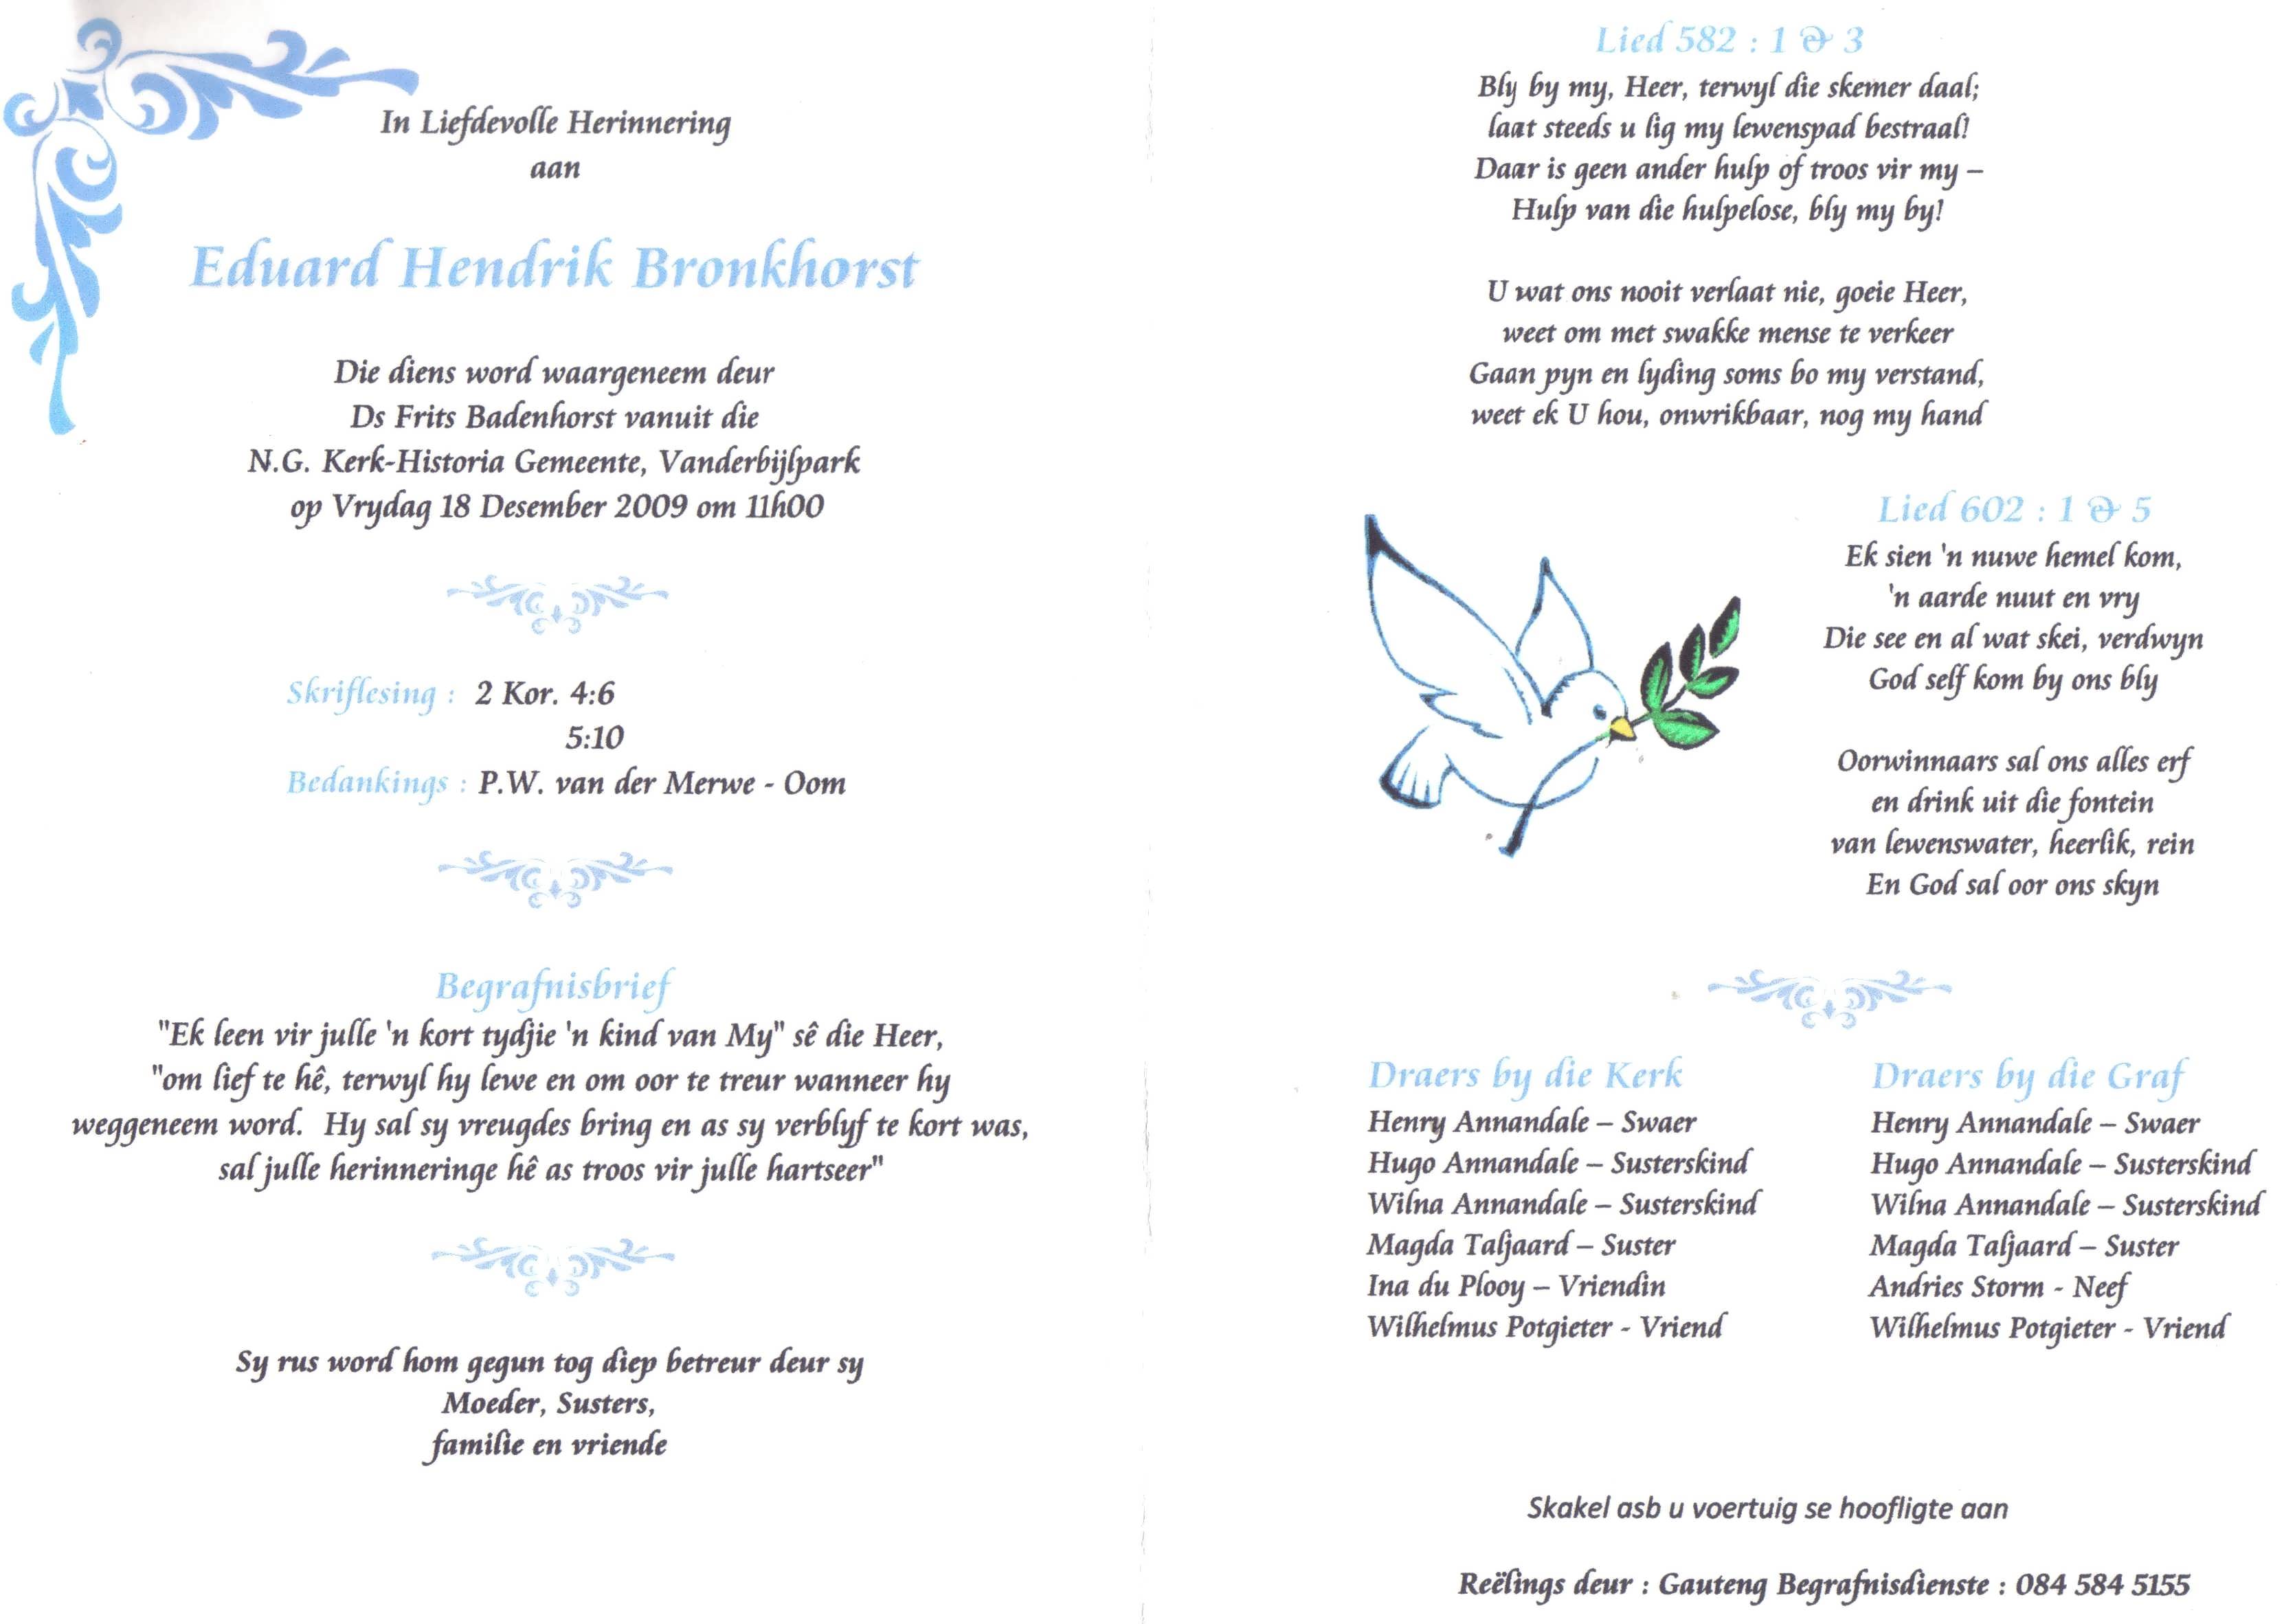 In Liefdevolle Herinnering
aan
Eduard Hendrik Bronkhorst
Die diens word waargeneem deur
Ds Frits Badenhorst vanuit die
N.G. Kerk-Historia Gemeente, Vanderbijlpark
op Vrydag 18 Desember 2009 om 11h00
Skriflesing : 2 Kor. 4:6
5:10
Bedankings : P.W. van der Merwe - Oom
Begrafnisbrief
"Ek leen vir julle 'n kort tydjie 'n kind van My" sê die Heer,
"om lief te hê, terwyl hy lewe en om oor te treur wanneer hy
weggeneem word. Hy sal sy vreugdes bring en as sy verblyf te kort was,
sal julle herinneringe hê as troos vir julle hartseer"
Sy rus word hom gegun tog diep betreur deur sy
Moeder, Susters,
familie en vriende
Lied 582 : 1 & 3
Bly by my, Heer, terwyl die skemer daal;
laat steeds u lig my lewenspad bestraal!
Daar is geen ander hulp of troos vir my –
Hulp van die hulpelose, bly my by!
U wat ons nooit verlaat nie, goeie Heer,
weet om met swakke mense te verkeer
Gaan pyn en lyding soms bo my verstand,
weet ek U hou, onwrikbaar, nog my hand
Lied 602 : 1 & 5
Ek sien 'n nuwe hemel kom,
'n aarde nuut en vry
Die see en al wat skei, verdwyn
God self kom by ons bly
Oorwinnaars sal ons alles erf
en drink uit die fontein
van lewenswater, heerlik, rein
En God sal oor ons skyn
Draers by die Kerk
Henry Annandale – Swaer
Hugo Annandale – Susterskind
Wilna Annandale – Susterskind
Magda Taljaard – Suster
Ina du Plooy – Vriendin
Wilhelmus Potgieter - Vriend
Draers by die Graf
Henry Annandale – Swaer
Hugo Annandale – Susterskind
Wilna Annandale – Susterskind
Magda Taljaard – Suster
Andries Storm - Neef
Wilhelmus Potgieter - Vriend
Skakel asb u voertuig se hoofligte aan
Reëlings deur : Gauteng Begrafnisdienste : 084 584 5155